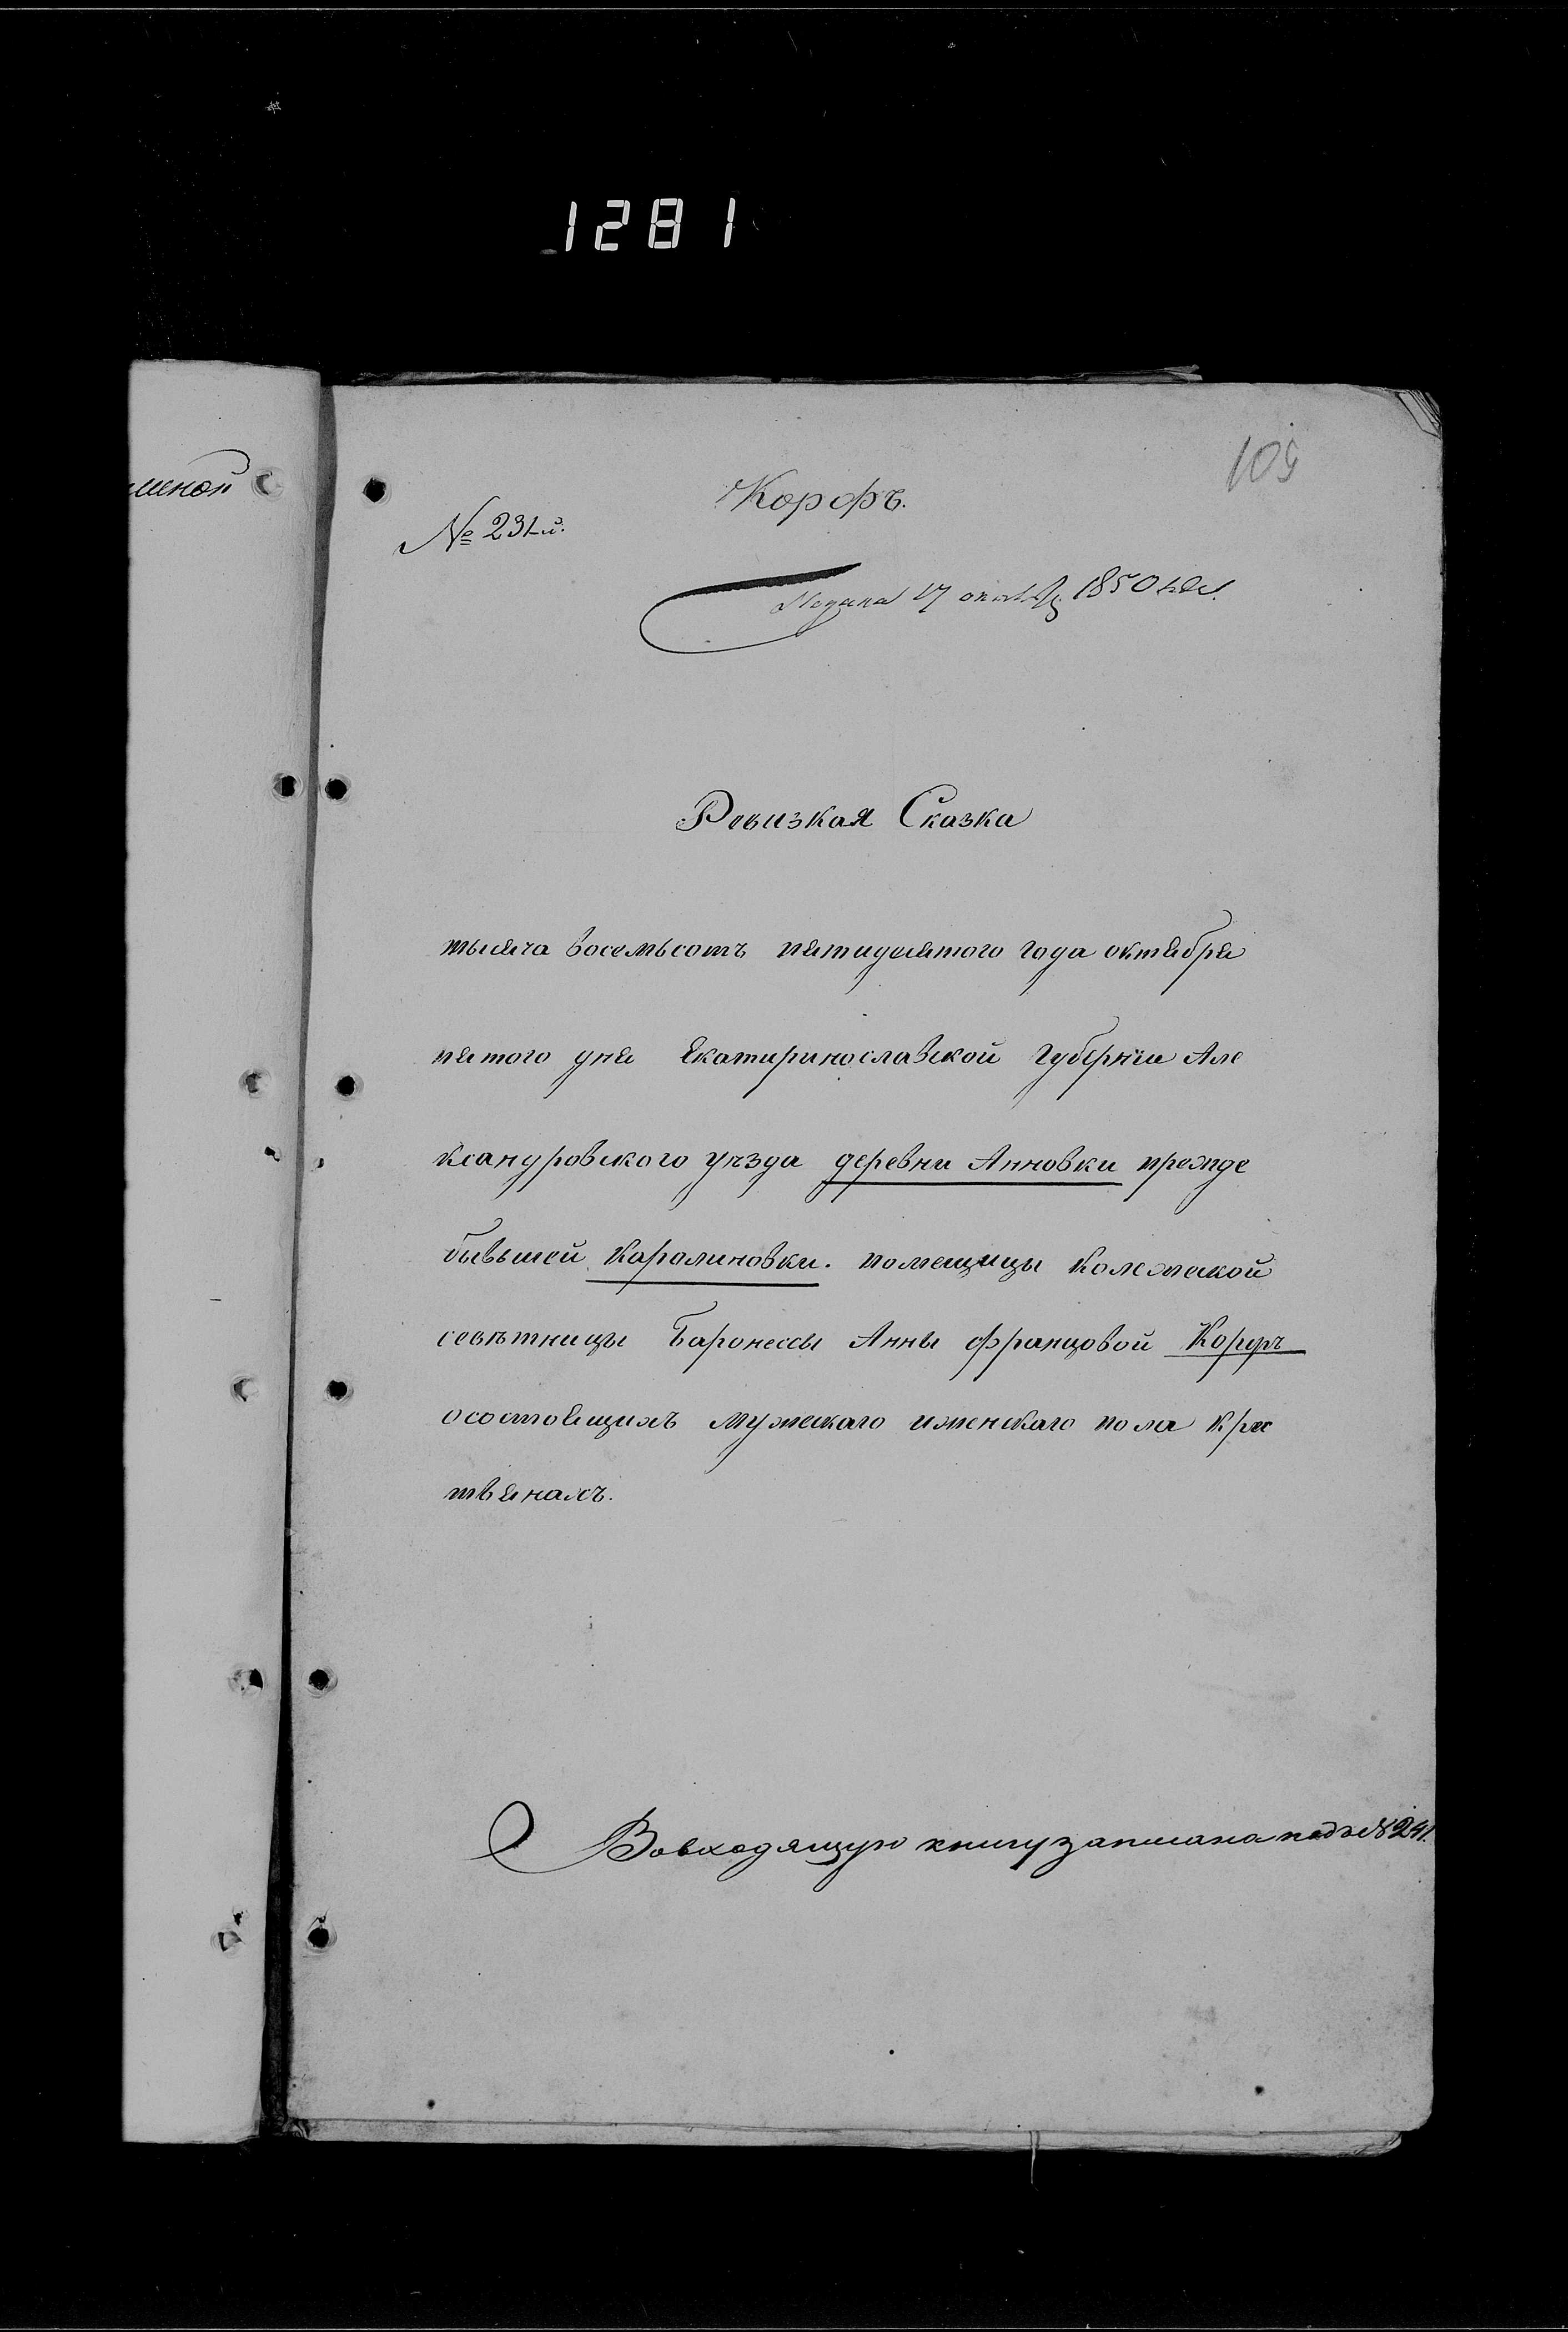 1281
109
меной
Корфъ.
№ 231-й.
Подана 17 октября 1850 года.
Ревизкая Сказка
тысяча восемьсотъ пятидесятого года октября
пятого дня Екатиринославской Губерніи Але
ксандровского уѣзда деревни Анновки прежде
бывьшей Каролиновки. помещицы Колежской
совѣтницы Баронессы Анны Францовой Корфъ
осостоящихъ мужескаго иженскаго пола крес
твянахъ.
Вовходящую книгу записана подъ № 241.